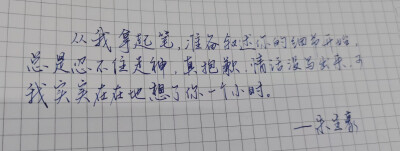 从我拿起笔，准备叙述你的细节开始，
总是忍不住走神，真抱歉，情话没写出来，可
我实实在在地想了你一个小时。
——朱生豪